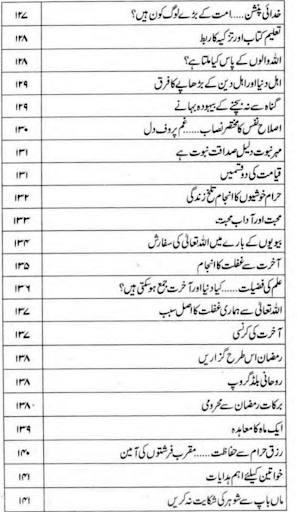 خدائی پنشن.....امت کے بڑے لوگ کون ہیں؟ ۱۲۷
تعلیم کتاب اور تزکیہ کا ربط ۱۲۸
اللہ والوں کے پاس کیا ملتا ہے؟ ۱۲۸
اہل دنیا اور اہل دین کے بڑھاپے کا فرق ۱۲۹
گناہ سے نہ بچنے کے بیہودہ بہانے ۱۲۹
اصلاح نفس کا مختصر نصاب......غم پروف دل ۱۳۰
مہر نبوت دلیل صداقت نبوت ہے ۱۳۱
قیامت کی دو قسمیں ۱۳۱
حرام خوشیوں کا انجام تلخ زندگی ۱۳۲
محبت اور آداب محبت ۱۳۳
بیویوں کے بارے میں اللہ تعالٰی کی سفارش ۱۳۴
آخرت سے غفلت کا انجام ۱۳۵
علم کی فضیلت......کیا دنیا اور آخرت جمع ہوسکتی ہیں؟ ۱۳۶
اللہ تعالٰی سے ہماری غفلت کا اصل سبب ۱۳۷
آخرت کی کرنسی ۱۳۷
رمضان اس طرح گزاریں ۱۳۸
روحانی بلڈ گروپ ۱۳۸
برکات رمضان سے محرومی ۱۳۸
ایک ماہ کا معاہدہ ۱۳۹
رزق حرام سے حفاظت......مقرب فرشتوں کی آمین ۱۴۰
خواتین کیلئے اہم ہدایات ۱۴۱
ماں باپ سے شوہر کی شکایت نہ کریں ۱۴۱